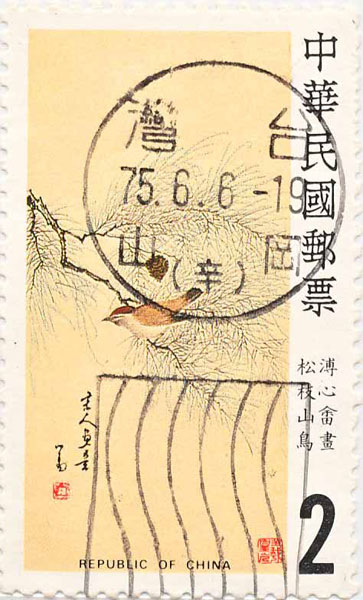 中華民國郵票
台灣
75.6.6-19
岡山
(辛)
溥心畬畫
松枝山鳥
2
REPUBLIC OF CHINA